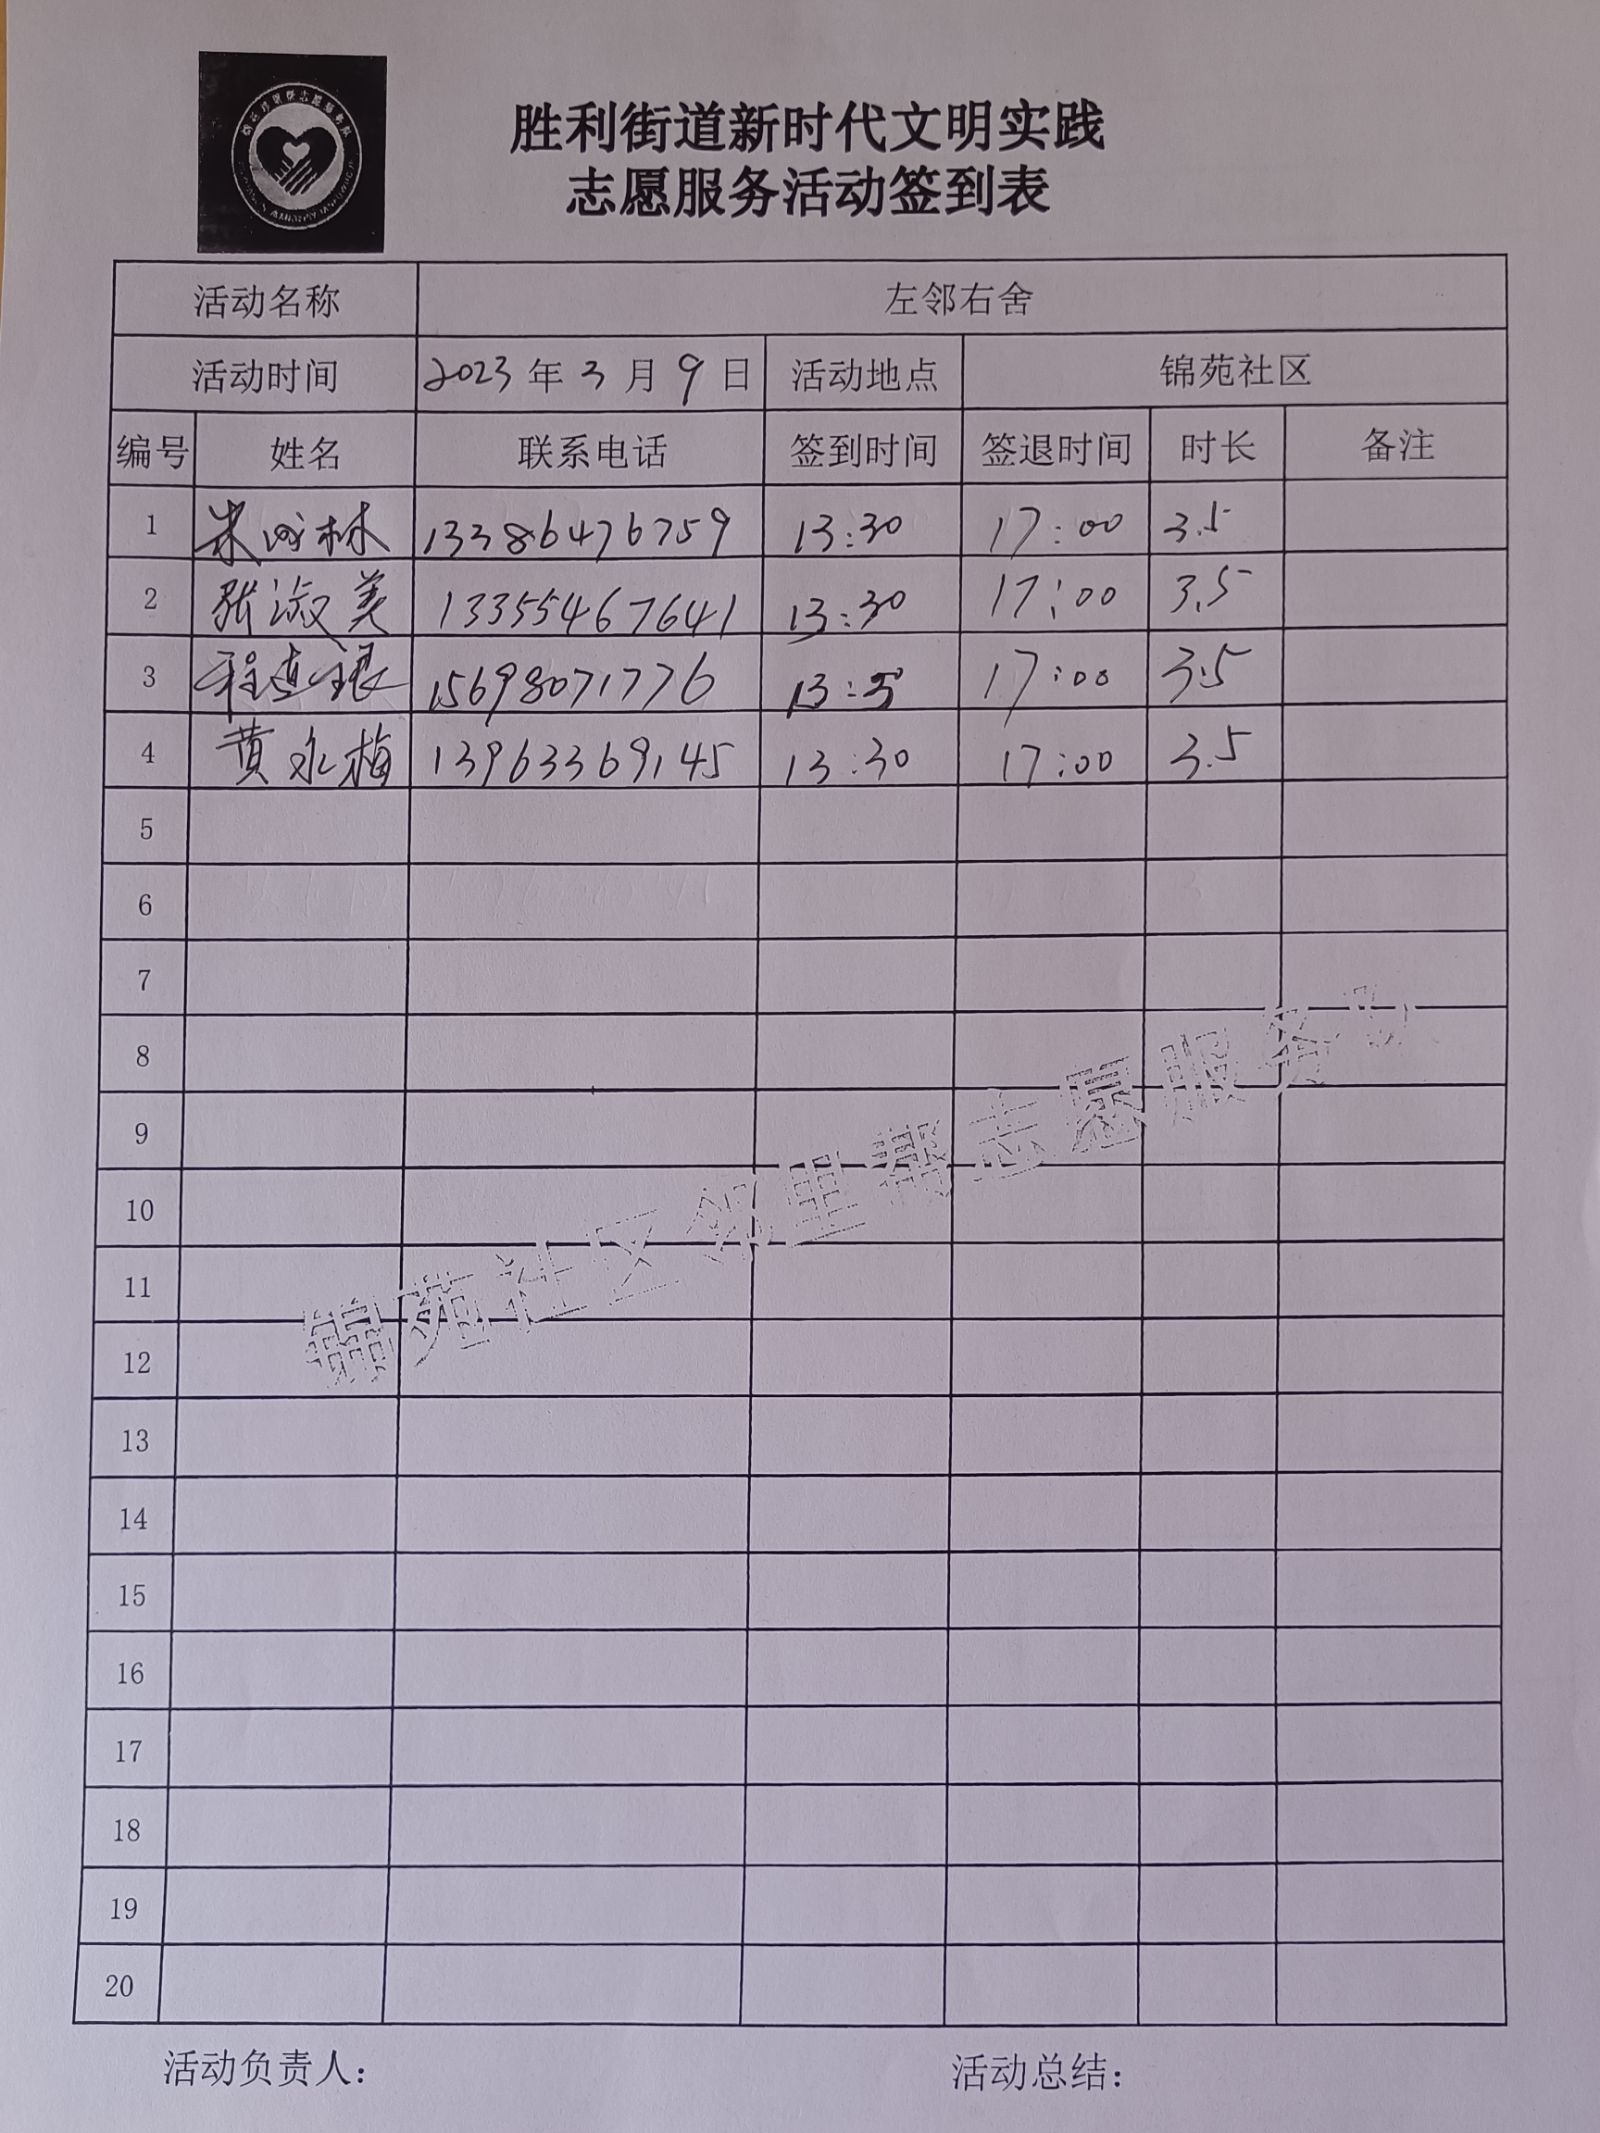 胜利街道新时代文明实践
志愿服务活动签到表
活动名称 左邻右舍
活动时间 2023年3月9日 活动地点 锦苑社区
编号 姓名 联系电话 签到时间 签退时间 时长 备注
1 林 13386476759 13:30 17:00 3.5
2 张淑美 13355467641 13:30 17:00 3.5
3 程 15698071776 13: 17:00 3.5
4 黄永梅 13963369145 13:30 17:00 3.5
5
6
7
8
9
10
11
12
13
14
15
16
17
18
19
20
锦苑社区邻里帮志愿服务队
活动负责人: 活动总结: